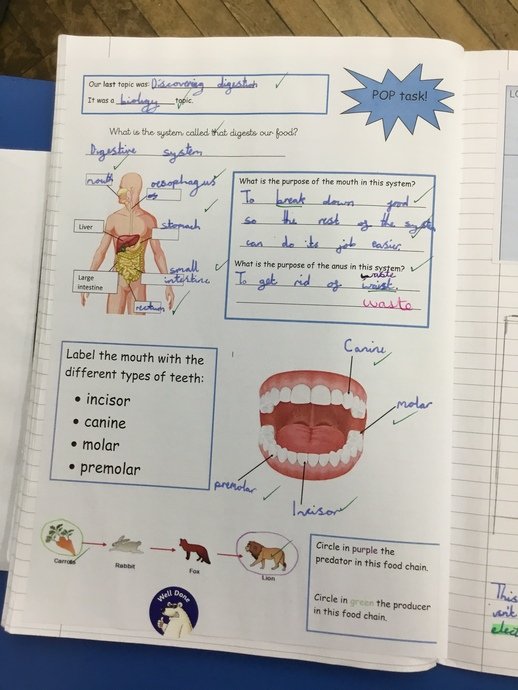 Our last topic was: Discovering digestion
It was a biology topic.
POP task!
What is the system called that digests our food?
Digestive system
mouth
oesophagus
Liver
stomach
Large
intestine
small
intestine
rectum
What is the purpose of the mouth in this system?
To break down food
so the rest of the system
can do its job easier.
What is the purpose of the anus in this system?
waste
To get rid of waist.
waste
Label the mouth with the
different types of teeth:
• incisor
• canine
• molar
• premolar
Canine
molar
premolar
Incisor
Carrots
Rabbit
Fox
Lion
Circle in purple the
predator in this food chain.
Circle in green the producer
in this food chain.
Well Done
This